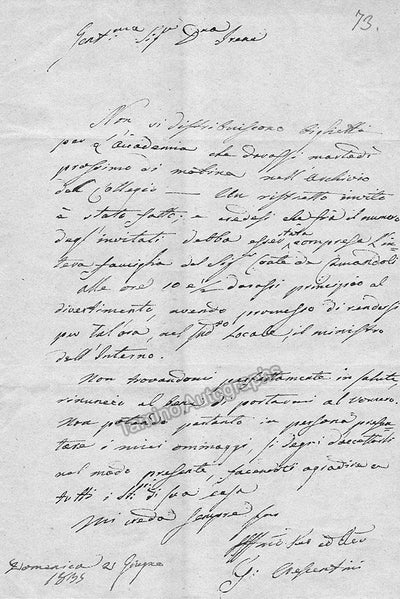 73.
Gent.ma Sig.ra D.na
Irene
Non si distribuiscono biglietti
per l'Accademia che darassi martedì
prossimo di mattina nell'Archivio
del Collegio — Un ristretto invito
è stato fatto; e credesi che fra il numero
degl'invitati debba esser stata compresa l'in-
tera famiglia del Sig.r Conte da Camaldoli
Alle ore 10 e ½ darassi principio al
divertimento, avendo promesso di rendersi
per tal'ora, nel sud.to Locale, il ministro
dell'Interno.
Non trovandomi perfettamente in salute
rinuncio al bene di portarmi al Vomero.
Non potendo pertanto in persona presen-
tare i miei ommaggi, si degni d'accettarli
nel modo presente, facendoli aggradire a
tutti i Sig.ri di sua casa
Mi creda sempre suo
ed
G: Crescentini
Domenica 21 Giugno
1835
Tamino Autographs